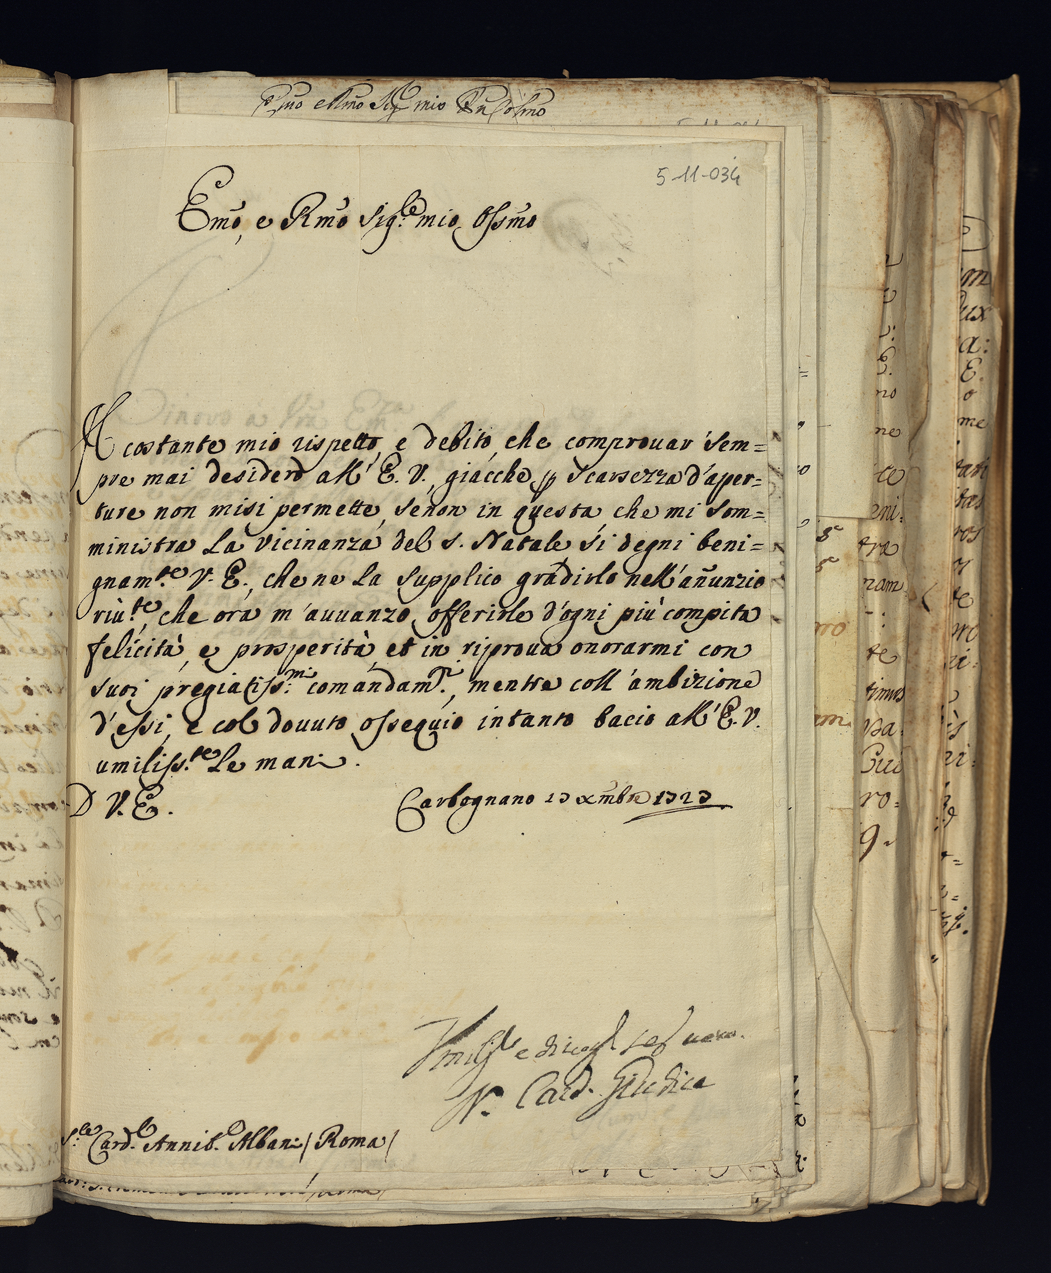 5-11-034
Emõ, e Rmõ Sig.re mio Ossmõ
Al costante mio rispetto, e debito, che comprouar sem=
pre mai desidero all' E. V., giacche p Scarsezza d'aper=
ture non misi permette, senon in questa che mi som=
ministra La Vicinanza del S. Natale si degni beni=
gnam.te V. E., che ne La Supplico gradirlo nell'añunzio
riũ.te, che ora m'auuanzo offerirle d'ogni più compita
felicità, e prosperità, et in riproua onorarmi con
suoi pregiatiss.mi comandam.ti, mentre coll'ambizione
d'essi, e col douuto ossequio intanto bacio all'E. V.
umiliss.te Le mani.
D V. E. Carbognano 23 xmbre 1723
Umiliss.o e
N. Card. Giudice
S.re Card.le Annib.e Albani / Roma /